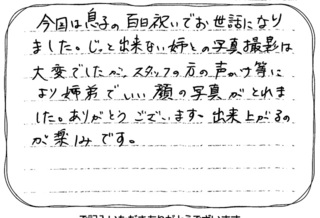 今回は息子の百日祝いでお世話になり
ました。じっと出来ない姉との写真撮影は
大変でしたが、スタッフの方の声かけ等に
より姉弟でいい顔の写真がとれま
した。ありがとうございます。出来上がるの
が楽しみです。